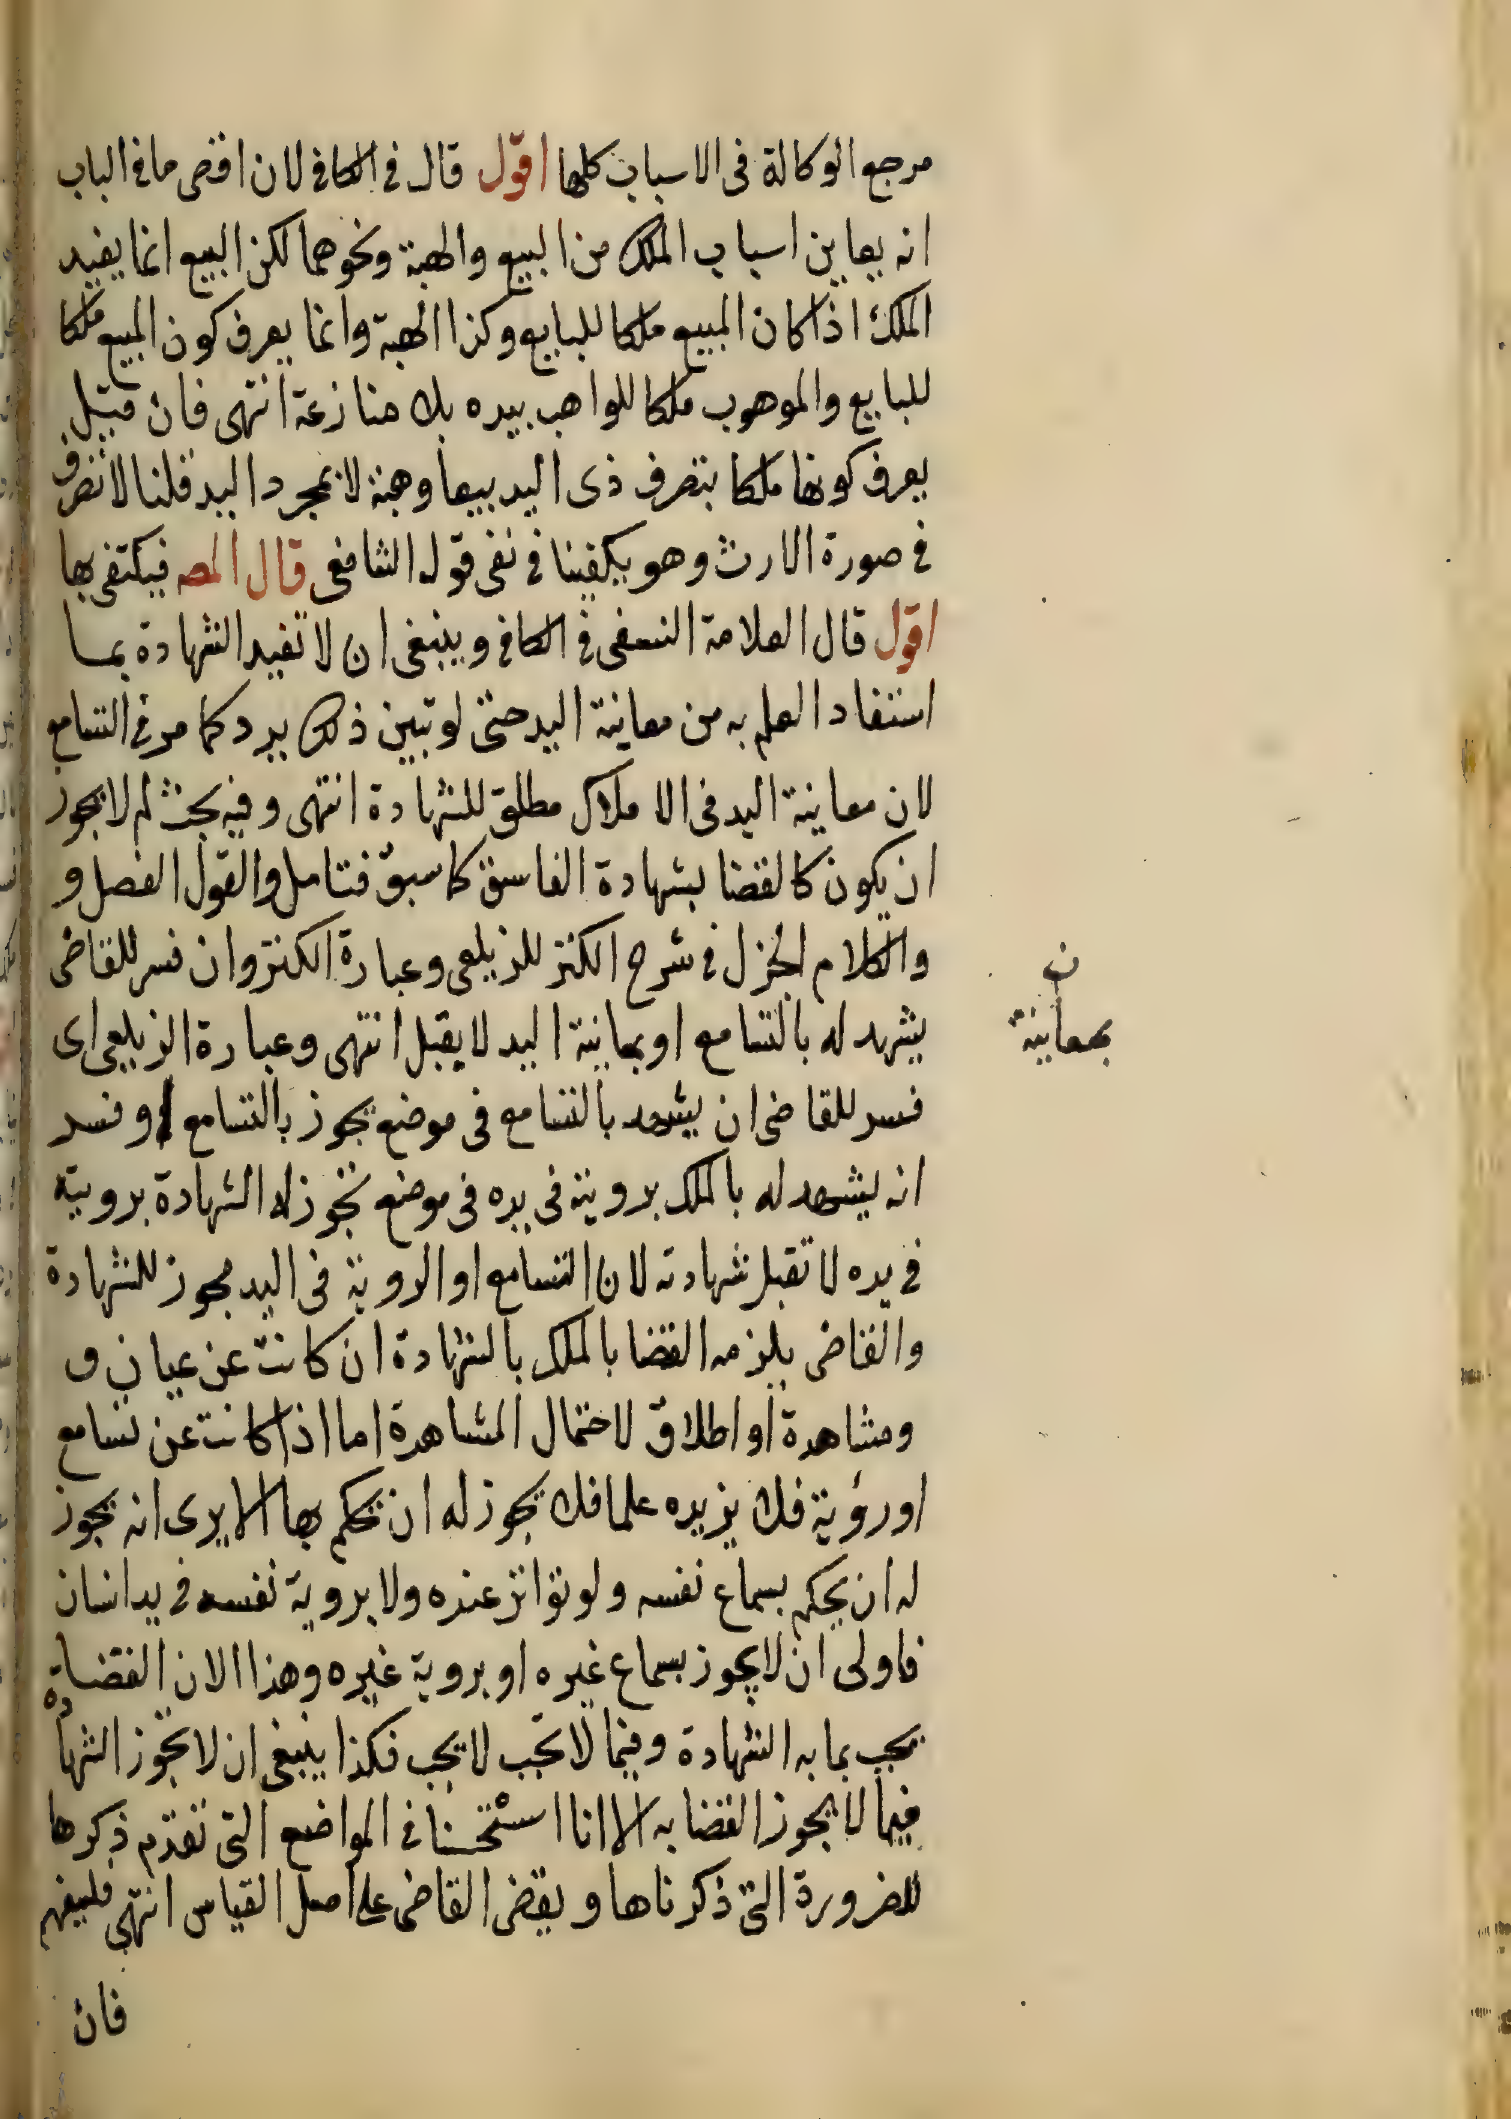 مرجع الوكالة فى الاسباب كلها اقول قال فى الكافى لان اقصى ما فى الباب
انه يعاين اسباب الملك من البيع والهبة ونحوهما لكن البيع انما يفيد
الملك اذا كان المبيع ملكا للبايع وكذا الهبة وانما يعرف كون المبيع ملكا
للبايع والموهوب ملكا للواهب بيده بلا منازعة انتهى فان قيل
يعرف كونها ملكا بتصرف ذى اليد بيعا وهبة لا بمجرد اليد قلنا لا تصرف
فى صورة الارث وهو يكفينا فى نفى قول الشافعى قال المصـ فيكتفى بها
اقول قال العلامة النسفى فى الكافى وينبغى ان لا تفيد الشهادة بمـا
استفاد العلم به من معاينة اليد حتى لو تبين ذلك يرد كما مر فى التسامع
لان معاينة اليد فى الاملاك مطلق للشهادة انتهى وفيه بحث لم لا يجوز
ان يكون كالقضا بشهادة الفاسق كما سبق فتامل والقول الفصل و
والكلام الجزل فى شرح الكنز للزيلعى وعبارة الكنز وان فسر للقاضى
يشهد له بالتسامع او بمعاينة اليد لا يقبل انتهى وعبارة الزيلعى اى
فسر للقاضى ان يشهد بالتسامع فى موضع يجوز بالتسامع او فسر
انه يشهد له بالملك بروية فى يده فى موضع تجوز له الشهادة بروية
فى يده لا تقبل شهادته لان التسامع او الروية فى اليد مجوز للشهادة
والقاضى يلزمه القضا بالملك بالشهادة ان كانت عن عيان و
ومشاهدة او اطلاق لاحتمال المشاهدة اما اذا كانت عن تسامع
او رؤية فلا يزيده علما فلا يجوز له ان يحكم بها الا يرى انه يجوز
له ان يحكم بسماع نفسه ولو تواتر عنده ولا بروية نفسه فى يد انسان
فاولى ان لا يجوز بسماع غيره او بروية غيره وهذا الان القضاة
يجب بما به الشهادة وفيما لا تجب لا يجب فكذا ينبغى ان لا تجوز الشهادة
فيما لا يجوز القضا به الا انا استحسنا فى المواضع التى تقدم ذكرها
للضرورة التى ذكرناها وبقى القاضى على اصل القياس انتهى فليفهم
فان
ن
بمعاينة